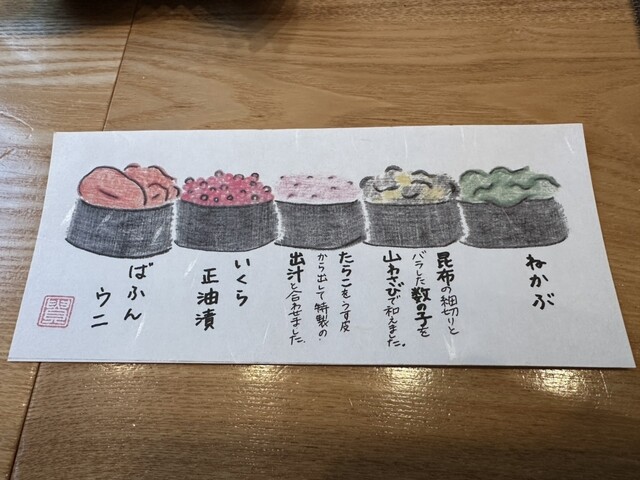 ねかぶ
昆布の細切りと
バラした数の子を
山わさびで和えました。
たらこをうす皮
から出して特製の
出汁と合わせました。
いくら
正油漬
ばふん
ウニ